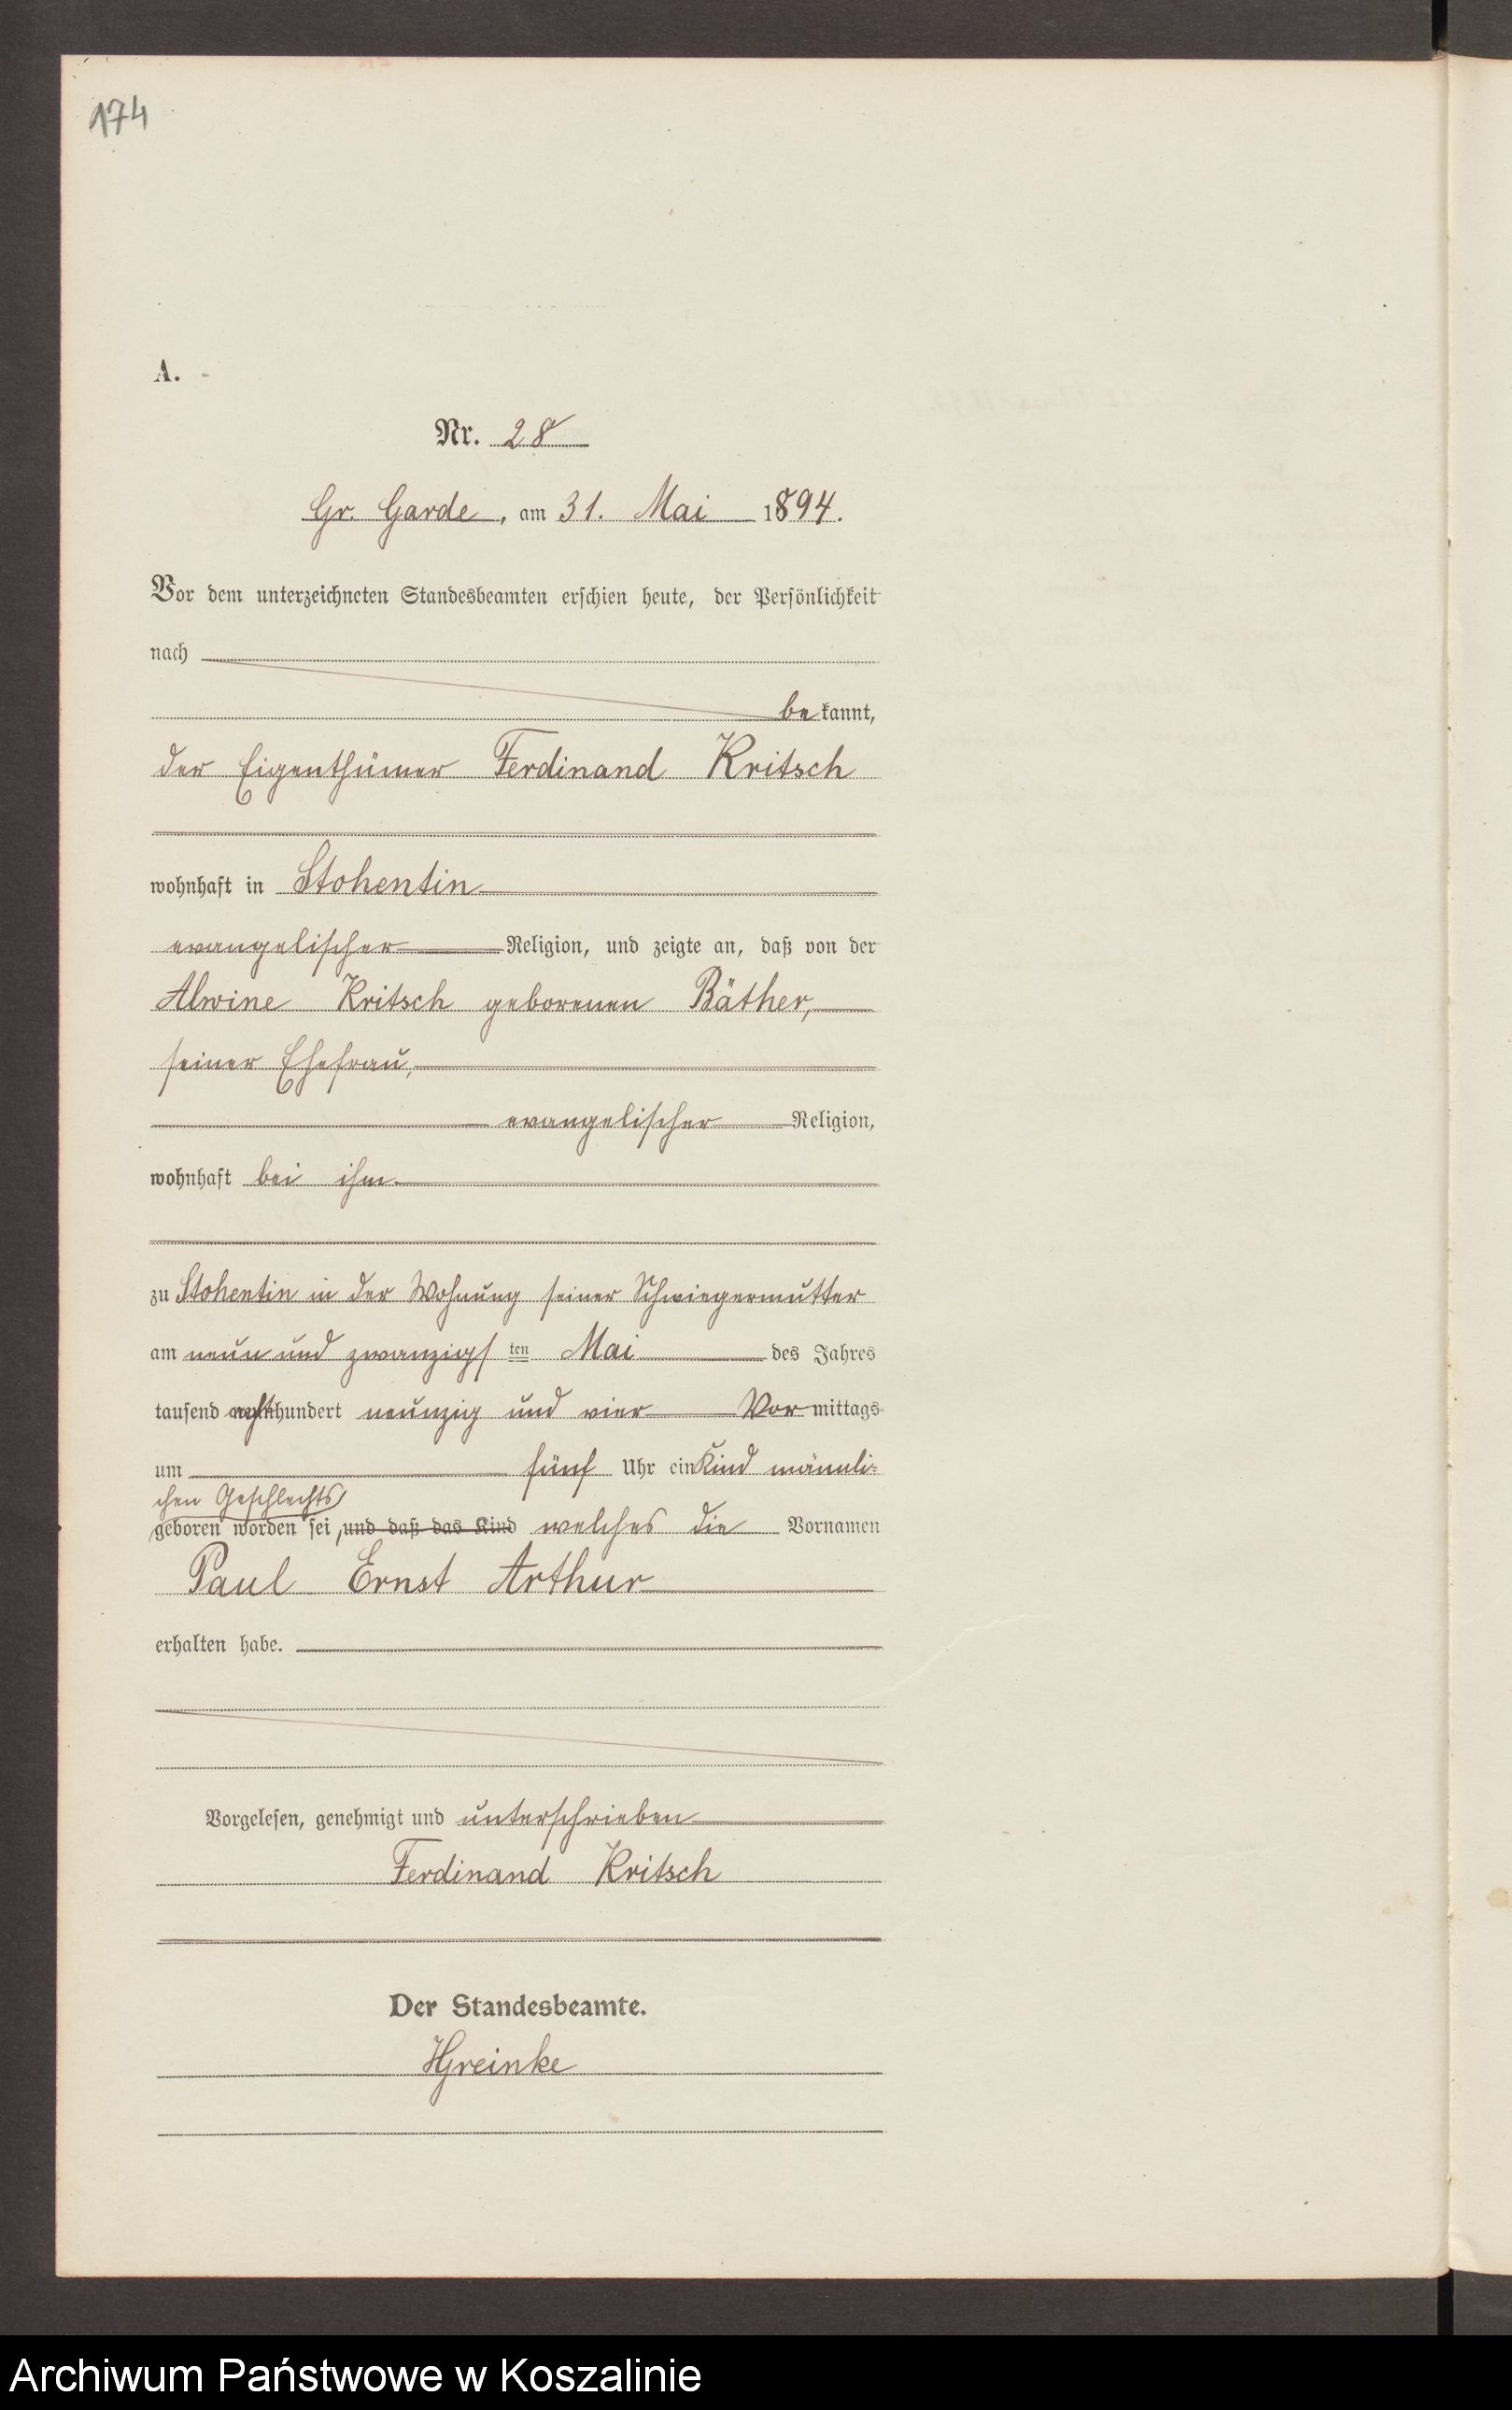 174
A.
Nr. 28
Gr. Garde, am 31. Mai 1894.
Vor dem unterzeichneten Standesbeamten erschien heute, der Persönlichkeit
nach
bekannt,
der Eigenthümer Ferdinand Kritsch
wohnhaft in Stohentin
evangelischer Religion, und zeigte an, daß von der
Alwine Kritsch geborenen Bäther,
seiner Ehefrau,
evangelischer Religion,
wohnhaft bei ihm
zu Stohentin in der Wohnung seiner Schwiegermutter
am neun und zwanzigsten Mai des Jahres
tausend achthundert neunzig und vier Vormittags
um fünf Uhr ein Kind männli-
chen Geschlechts
geboren worden sei, und daß das Kind welches die Vornamen
Paul Ernst Arthur
erhalten habe.
Vorgelesen, genehmigt und unterschrieben
Ferdinand Kritsch
Der Standesbeamte.
HGreinke
Archiwum Państwowe w Koszalinie